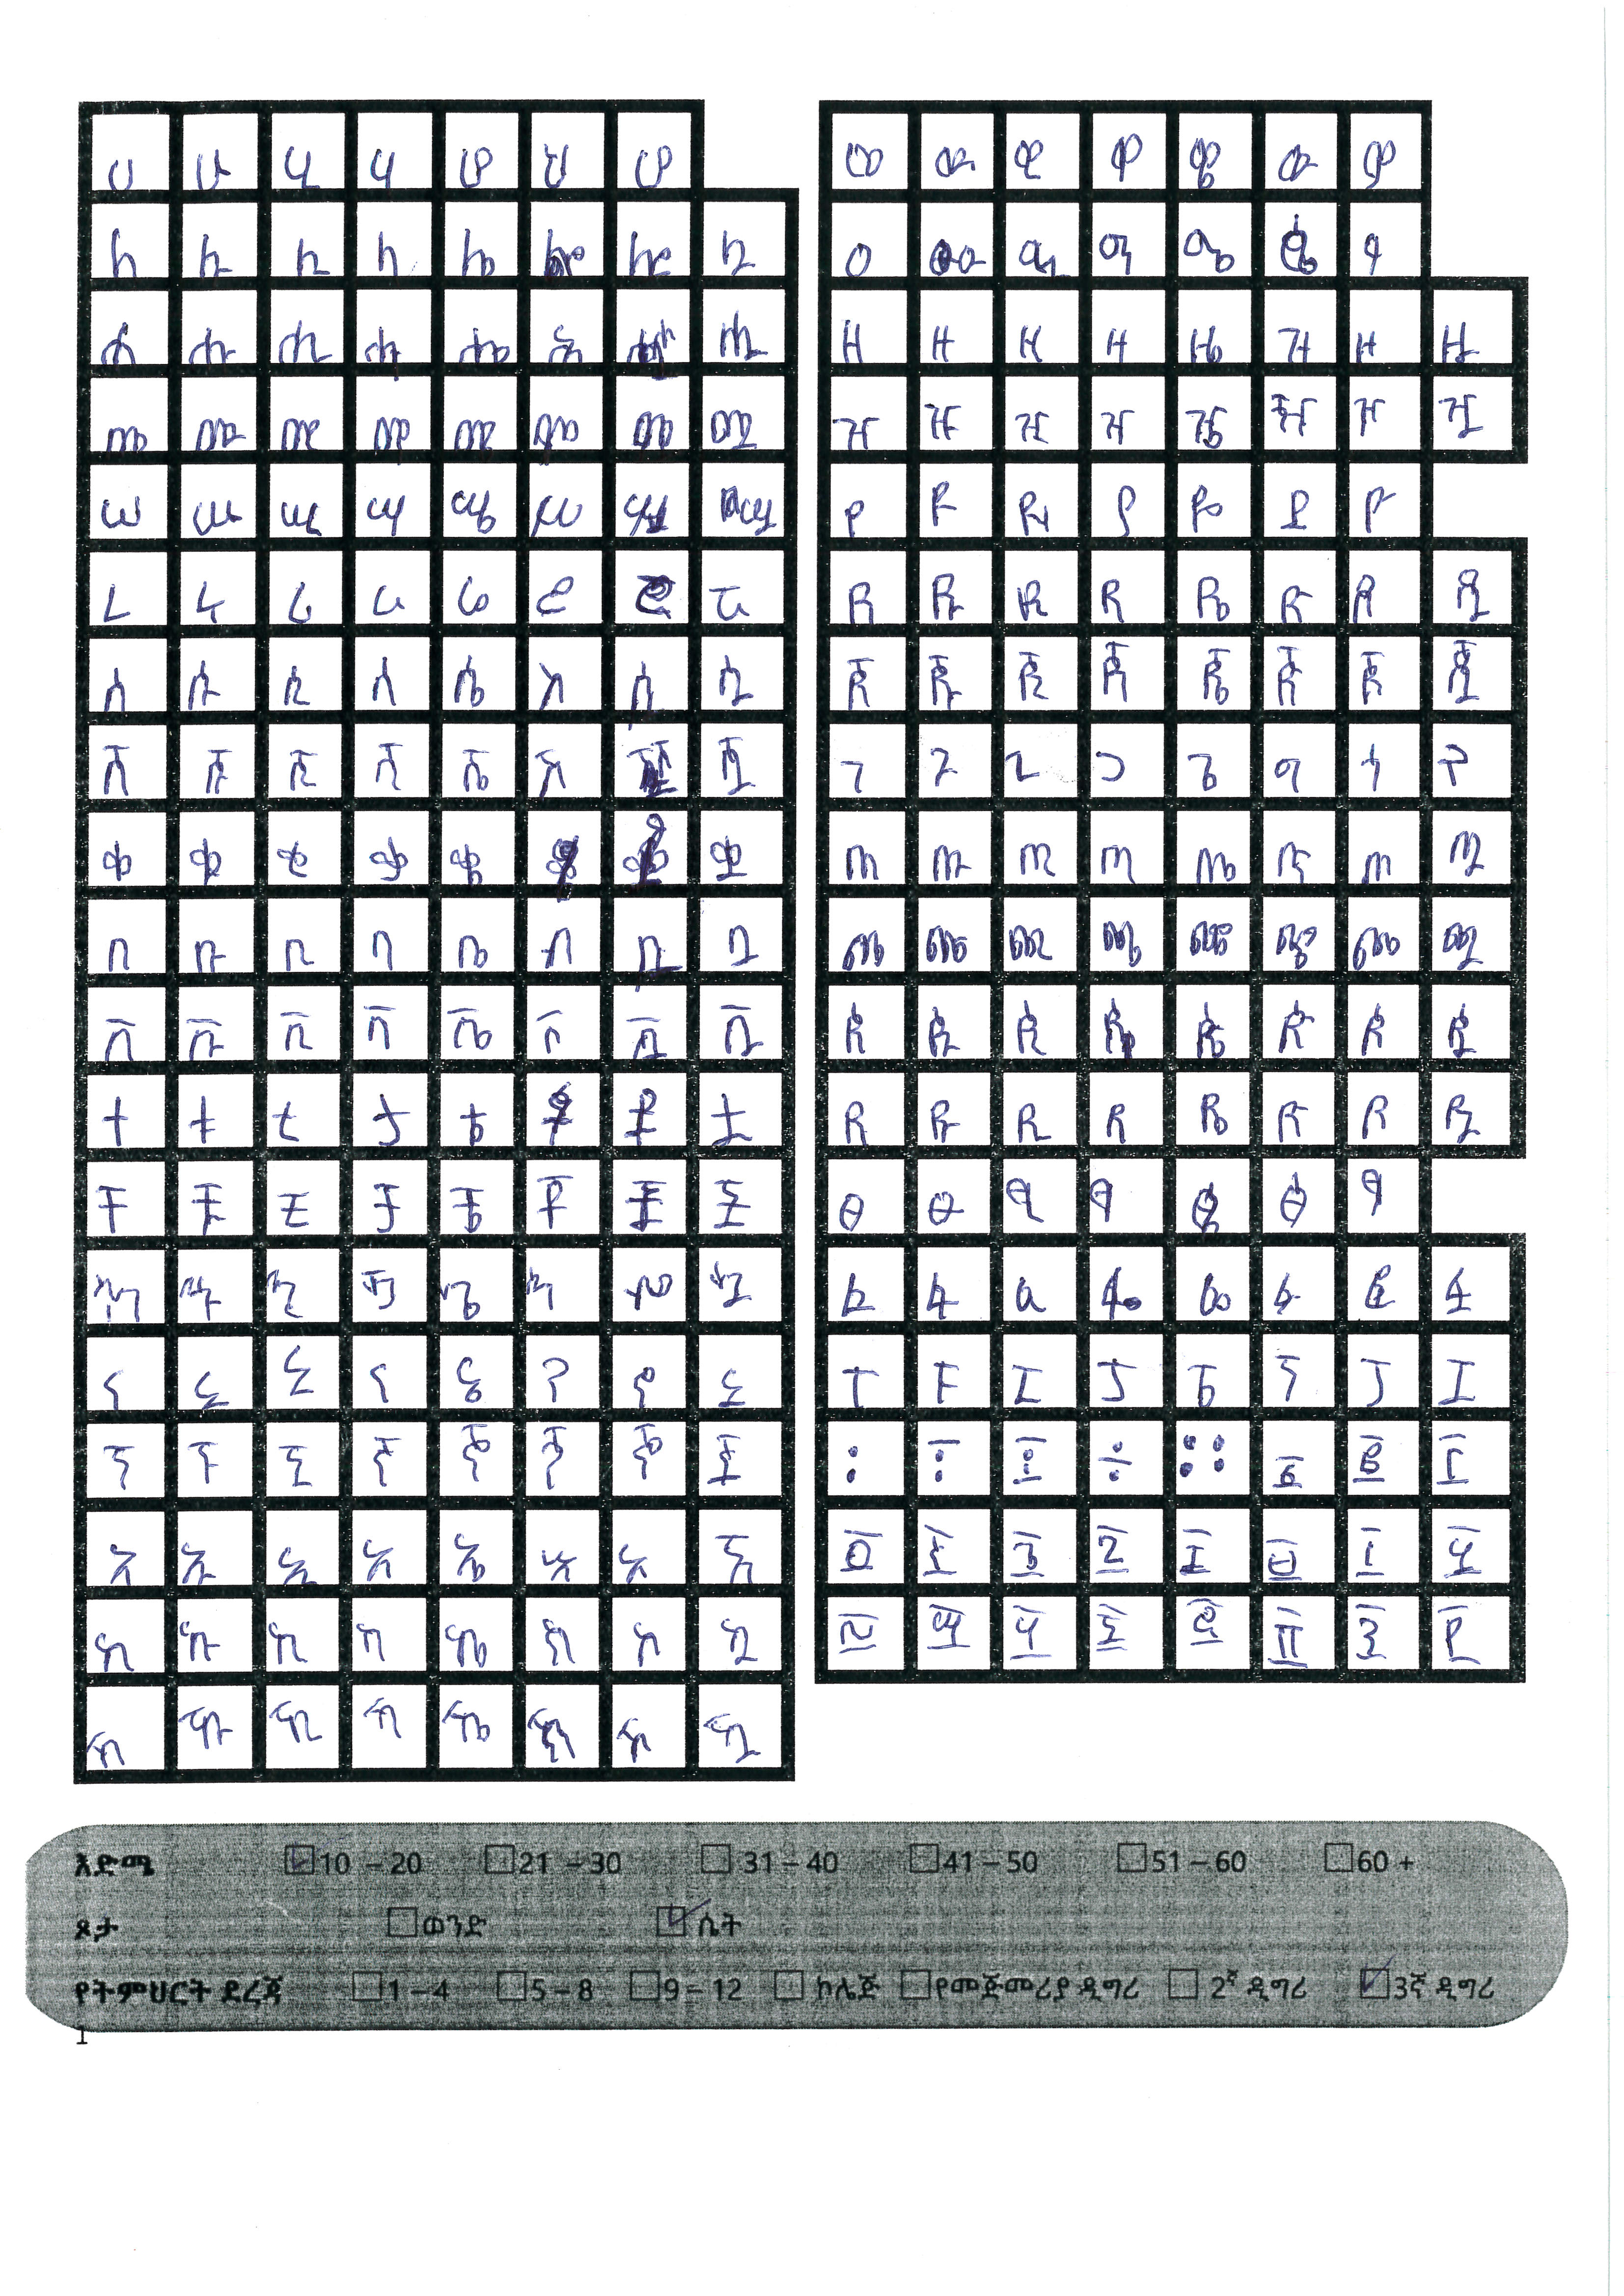 ሀ ሁ ሂ ሃ ሄ ህ ሆ
ለ ሉ ሊ ላ ሌ ል ሎ ሏ
ሐ ሑ ሒ ሓ ሔ ሕ ሗ
መ ሙ ሚ ማ ሜ ም ሞ ሟ
ሠ ሡ ሢ ሣ ሤ ሥ ሦ ሧ
ረ ሩ ሪ ራ ሬ ር ሮ ሯ
ሰ ሱ ሲ ሳ ሴ ስ ሶ ሷ
ሸ ሹ ሺ ሻ ሼ ሽ ሿ
ቀ ቁ ቂ ቃ ቄ ቅ ቆ ቋ
በ ቡ ቢ ባ ቤ ብ ቦ ቧ
ቨ ቩ ቪ ቫ ቬ ቭ ቮ ቯ
ተ ቱ ቲ ታ ቴ ት ቶ ቷ
ቸ ቹ ቺ ቻ ቼ ች ቾ ቿ
ኀ ኁ ኂ ኃ ኄ ኅ ኆ ኋ
ነ ኑ ኒ ና ኔ ን ኖ ኗ
ኘ ኙ ኚ ኛ ኜ ኝ ኞ ኟ
አ ኡ ኢ ኣ ኤ እ ኦ ኧ
ከ ኩ ኪ ካ ኬ ክ ኮ ኳ
ኸ ኹ ኺ ኻ ኼ ኽ ኾ ዃ
ወ ዉ ዊ ዋ ዌ ው ዎ
ዐ ዑ ዒ ዓ ዔ ዕ ዖ
ዘ ዙ ዚ ዛ ዜ ዝ ዞ ዟ
ዠ ዡ ዢ ዣ ዤ ዥ ዦ ዧ
የ ዩ ዪ ያ ዬ ይ ዮ
ደ ዱ ዲ ዳ ዴ ድ ዶ ዷ
ጀ ጁ ጂ ጃ ጄ ጅ ጆ ጇ
ገ ጉ ጊ ጋ ጌ ግ ጎ ጓ
ጠ ጡ ጢ ጣ ጤ ጥ ጦ ጧ
ጨ ጩ ጪ ጫ ጬ ጭ ጮ ጯ
ጰ ጱ ጲ ጳ ጴ ጵ ጶ ጷ
ጸ ጹ ጺ ጻ ጼ ጽ ጾ ጿ
ፀ ፁ ፂ ፃ ፄ ፅ ፆ
ፈ ፉ ፊ ፋ ፌ ፍ ፎ ፏ
ፐ ፑ ፒ ፓ ፔ ፕ ፖ ፗ
፡ ፣ ፤ ÷ ። ፩ ፪ ፫
፬ ፭ ፮ ፯ ፰ ፱ ፲ ፳
፴ ፵ ፶ ፷ ፸ ፹ ፺ ፻
እድሜ 10 – 20 21 – 30 31 – 40 41 – 50 51 – 60 60 +
ጾታ ወንድ ሴት
የትምህርት ደረጃ 1 – 4 5 – 8 9 – 12 ኮሌጅ የመጀመሪያ ዲግሪ 2ኛ ዲግሪ 3ኛ ዲግሪ
1